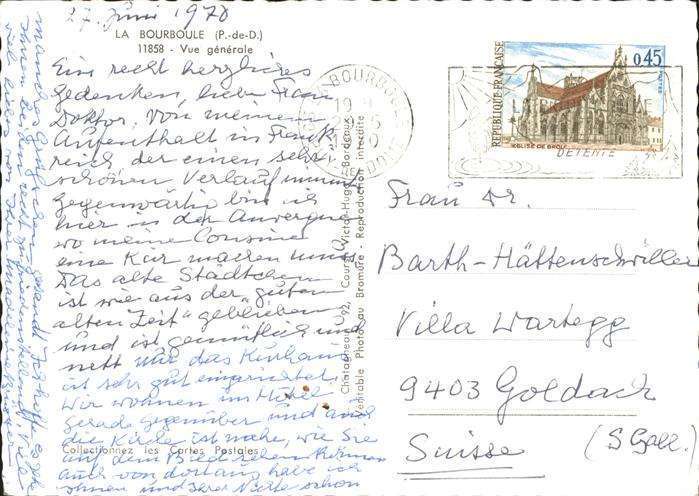 27. Juni 1970
LA BOURBOULE (P.-de-D.)
11858 - Vue générale
Ein recht herzliches
Gedenken, liebe Frau
Doktor, von meinem
Aufenthalt in Frank
reich der einen sehr
schönen Verlauf nimmt
Gegenwärtig bin ich
hier in der Auvergne
wo meine Cousine
eine Kur machen muss
Das alte Städtchen
ist wie aus der "guten
alten Zeit" geblieben
und ist gemütlich und
nett und das Kurhaus
ist sehr gut eingerichtet.
Wir wohnen im Hôtel
gerade gegenüber und auch
die Kirche ist nahe, wie Sie
auf dem Bild sehen können
Auch von dort aus habe ich
Ihnen und Ihrer Nichte schon
Collectionnez les Cartes Postales
Chatagneau 92, Cours Victor-Hugo Bordeaux
Véritable Photo au Bromure - Reproduction interdite
BOURBOULE
REPUBLIQUE FRANÇAISE
0,45
EGLISE DE BROU
DETENTE
Frau Dr.
Barth-Hättenschwiller
Villa Wartegg
9403 Goldach
(S Gall.)
Suisse